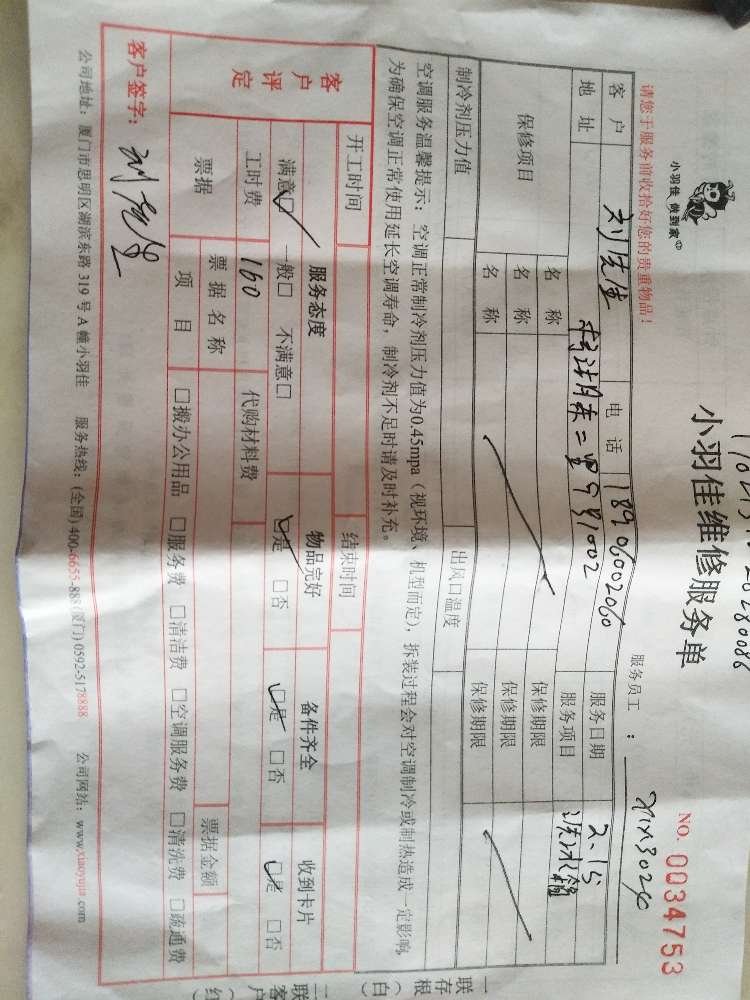 小羽佳 做到家
小羽佳维修服务单
NO. 0034753
请您于服务前收拾好您的贵重物品！
服务员工：
客户 刘先生 电话 18906002060 服务日期 2.15
地址 服务项目 洗冰箱
保修项目 名称 保修期限
名称 保修期限
名称 保修期限
制冷剂压力值 出风口温度
空调服务温馨提示：空调正常制冷剂压力值为0.45mpa（视环境、机型而定），拆装过程会对空调制冷或制热造成一定影响，
为确保空调正常使用延长空调寿命，制冷剂不足时请及时补充。
开工时间 结束时间
客户评定 服务态度 物品完好 备件齐全 收到卡片
满意□ 一般□ 不满意□ □是 □否 □是 □否 □是 □否
工时费 160 代购材料费
票据 票据名称 票据金额
项目 □搬办公用品 □服务费 □清洁费 □空调服务费 □清洗费 □疏通费
客户签字：
公司地址：厦门市思明区湖滨东路319号A幢小羽佳 服务热线：(全国)400-6655-888(厦门)0592-5178888 公司网站：www.xiaoyujia.com
一联存根（白
二联客户（红